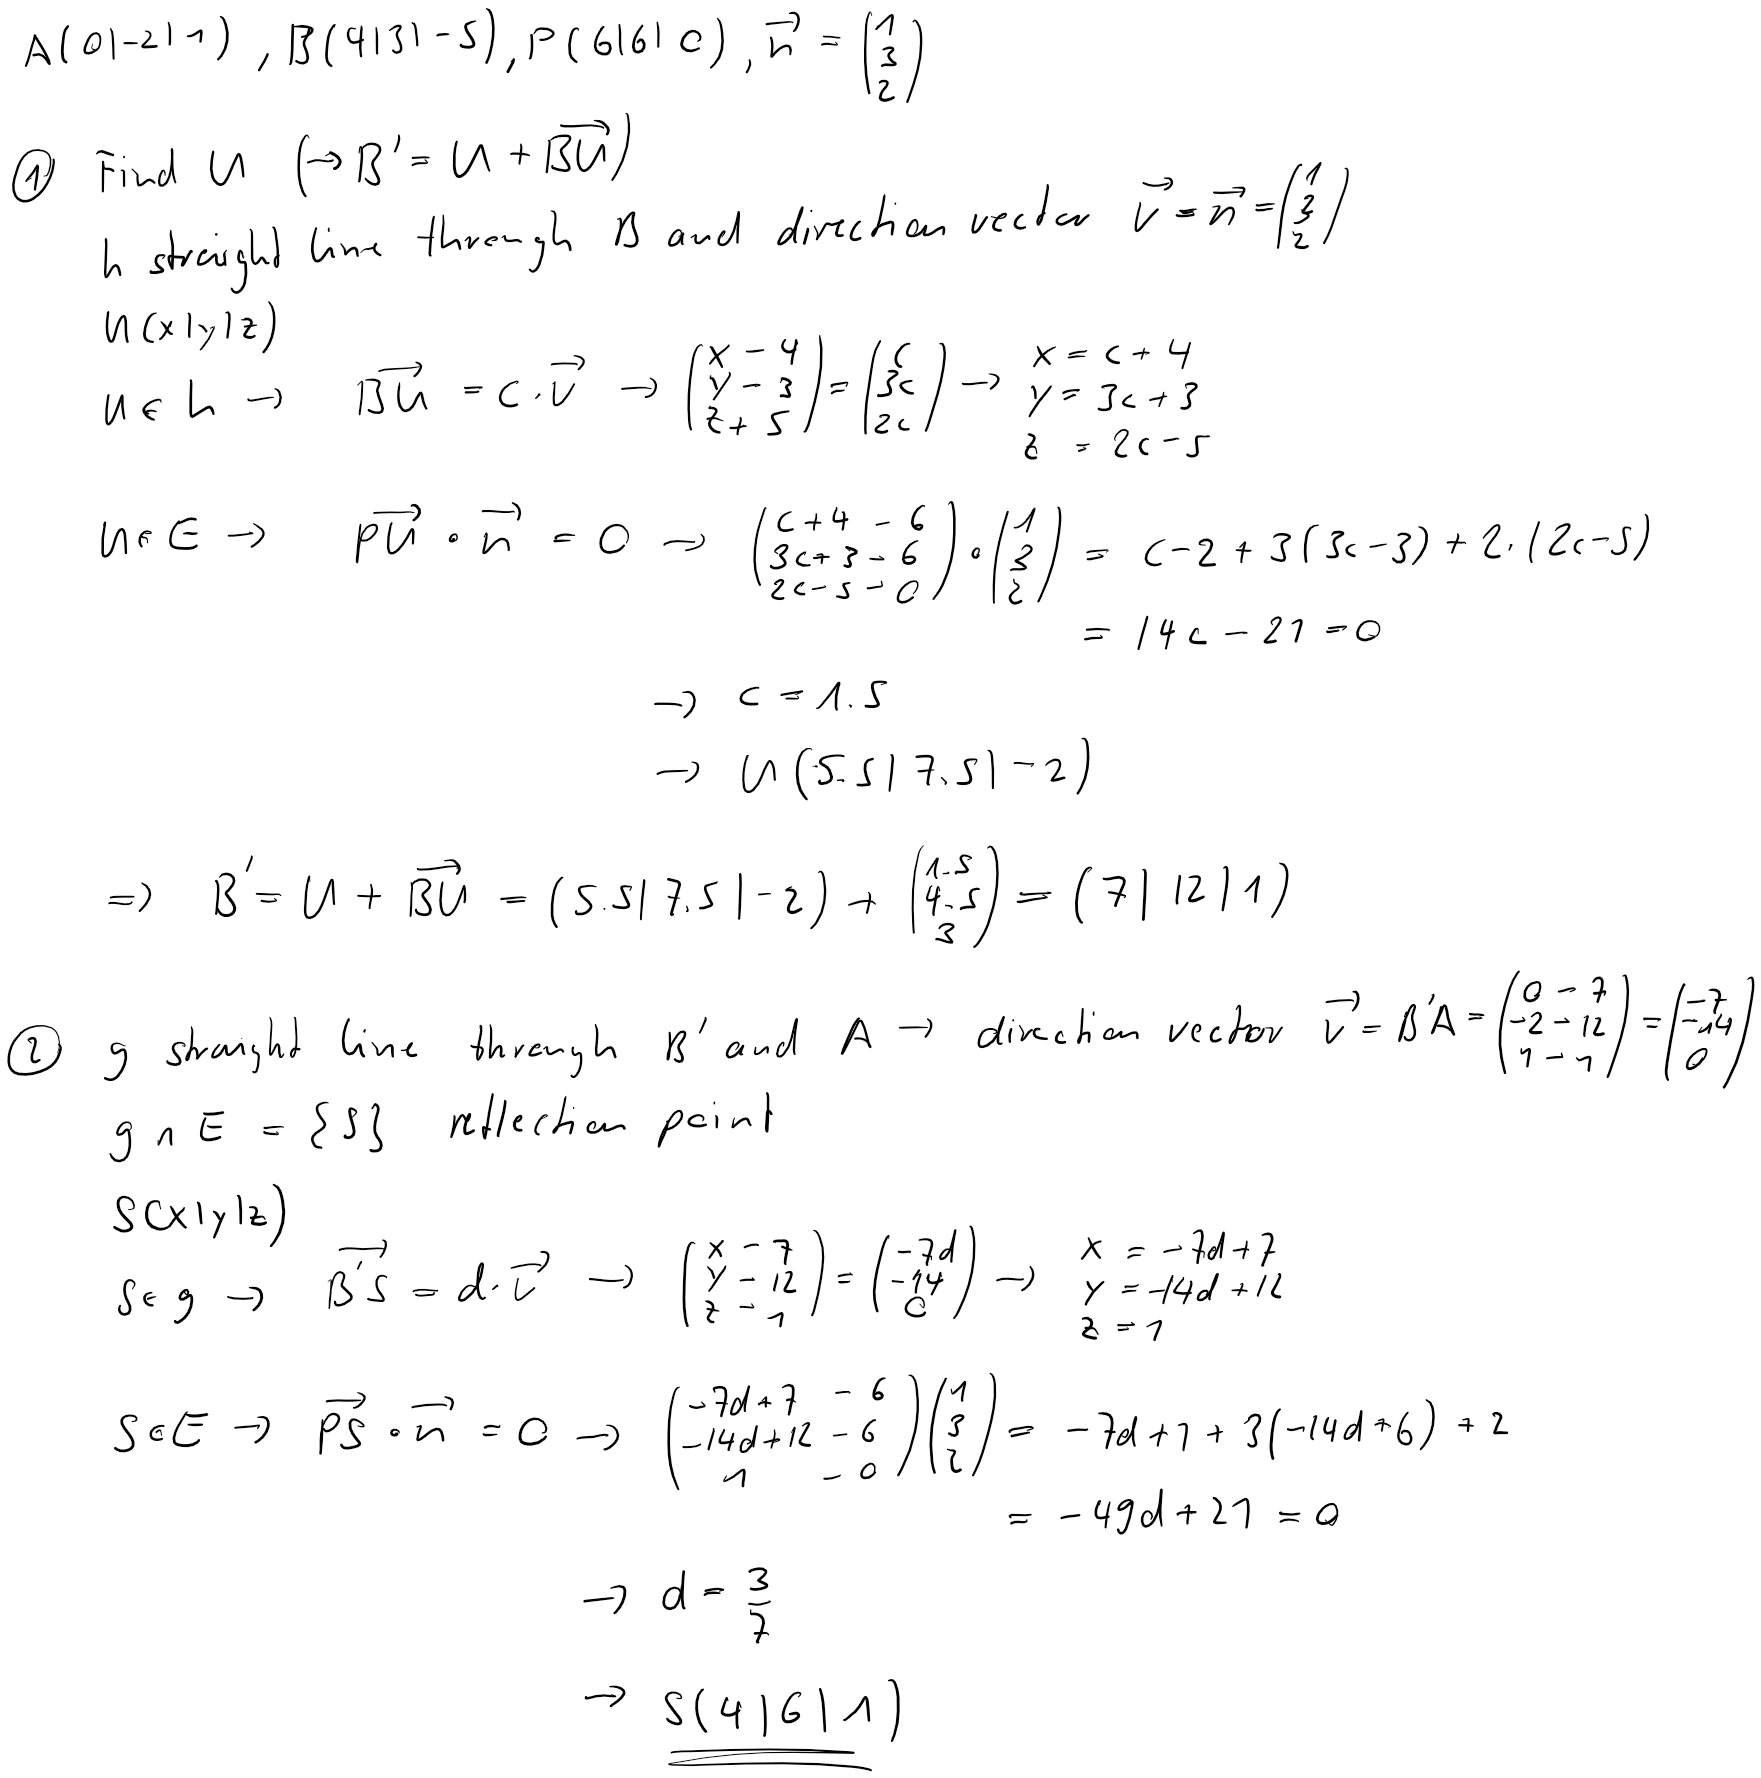 A(0|-2|1), B(4|3|-5), P(6|6|0), n⃗ = (1 3 2)
① Find U (→ B' = U + BU⃗)
h straight line through B and direction vector v⃗ = n⃗ = (1 3 2)
U(x|y|z)
U ∈ h → BU⃗ = c·v⃗ → (x - 4, y - 3, z + 5) = (c, 3c, 2c) → x = c + 4
y = 3c + 3
z = 2c - 5
U ∈ E → PU⃗ ∘ n⃗ = 0 → (c+4 - 6, 3c+3 - 6, 2c-5 - 0) ∘ (1 3 2) = c-2 + 3(3c-3) + 2·(2c-5)
= 14c - 21 = 0
→ c = 1.5
→ U(5.5|7.5|-2)
⇒ B' = U + BU⃗ = (5.5|7.5|-2) + (1.5 4.5 3) = (7|12|1)
② g straight line through B' and A → direction vector v⃗ = B'A = (0 - 7, -2 - 12, 1 - 1) = (-7 -14 0)
g ∩ E = {S} reflection point
S(x|y|z)
S ∈ g → B'S⃗ = d·v⃗ → (x - 7, y - 12, z - 1) = (-7d, -14, 0) → x = -7d+7
y = -14d+12
z = 1
S ∈ E → PS⃗ ∘ n⃗ = 0 → (-7d+7 - 6, -14d+12 - 6, 1 - 0)(1 3 2) = -7d+1 + 3(-14d+6) + 2
= -49d + 21 = 0
→ d = 3/7
→ S(4|6|1)